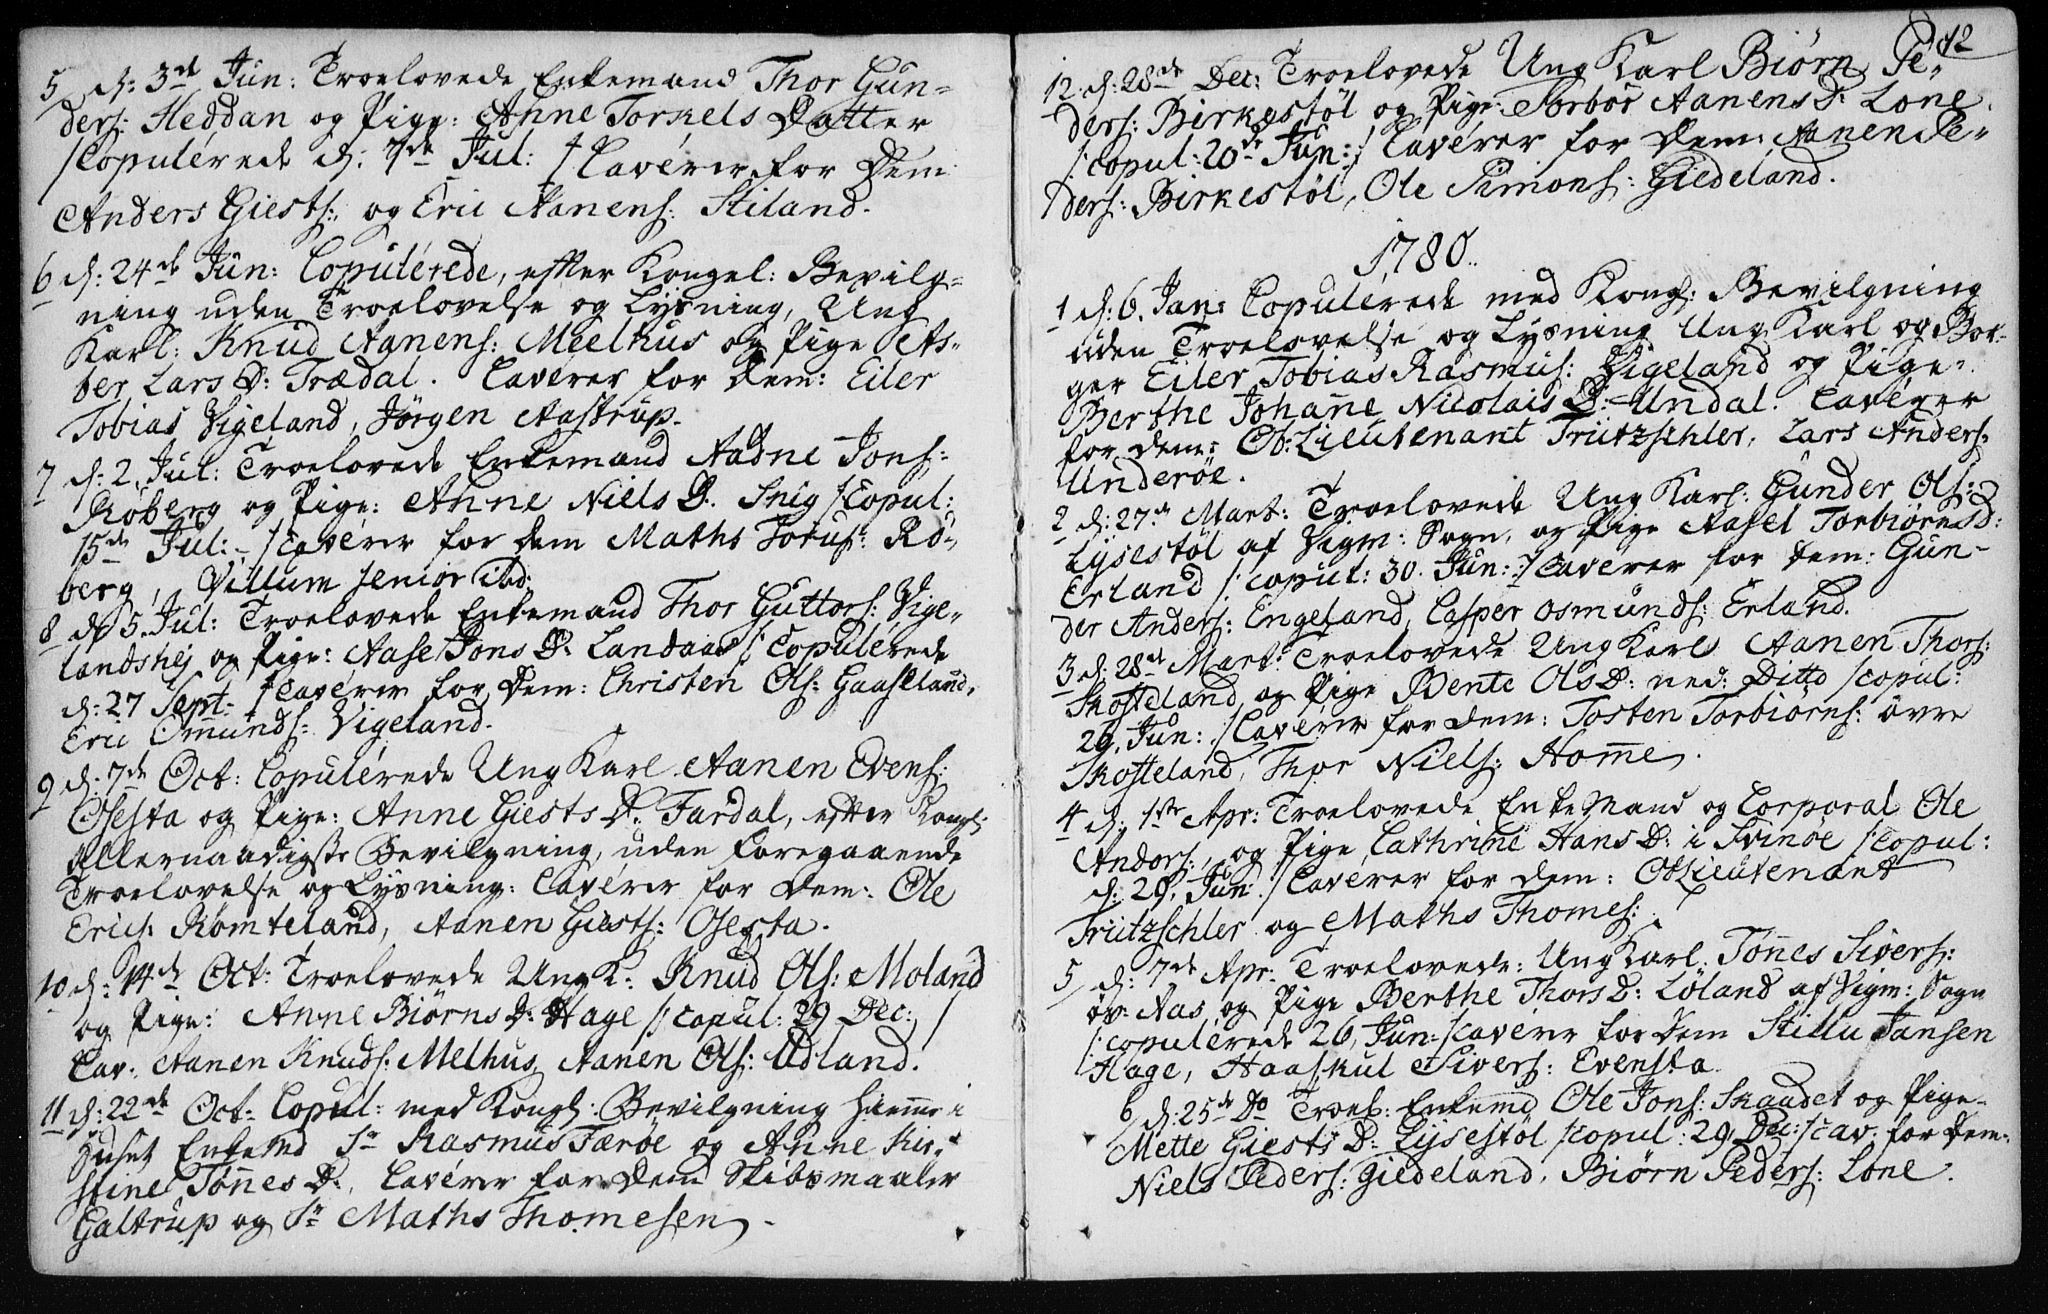 5 d: 3de Jun: Troelovede Enkemand Thor Gun-
ders: Heddan og Pige: Anne Torkels Datter
/Copulerede d: 7de Jul: / Caverer for Dem
Anders Giests:, og Eric Aanens: Stiland.
6 d: 24de Jun: Copulerede, efter Kongel: Bevilg-
ning uden Troelovelse og Lysning, Ung
Karl: Knud Aanens: Meelhus og Pige As-
ber Lars D: Trædal. Caverer for Dem: Eiler
Tobias Vigeland, Jörgen Aastrup.
7 d: 2. Jul: Troelovede Enkemand Aadne Jons:
Röberg og Pige: Anne Niels D. Snig /Copul:
15de Jul: /caverer for dem Maths Rö-
berg, Villum senior ibd:
8 d: 5. Jul: Troelovede Enkemand Thor Guttors: Vige-
landshej og Pige: Aase Jons D. Landaas /: Copulerede
d: 27 Sept: /Caverer for Dem: Christen Ols: Gaaseland,
Eric Omunds: Vigeland.
9 d. 7de Oct: Copulerede Ung Karl Aanen Evens:
Osesta og Pige: Anne Giests D. Fardal, efter Kongl:
allernaadigste Bevilgning, uden foregaaende
Troelovelse og Lysning: Caverer for Dem: Ole
Erics: Römteland, Aanen Giests: Osesta.
10 d: 14de Oct: Troelovede Ung K: Knud Ols: Moland
og Pige: Anne Biörns D. Hage /: copul: 29 Dec: /
Cav: Aanen Knuds: Melhus, Aanen Ols: Udland.
11 d: 22de Oct: Copul: med Kongl: Bevilgning hiemme i
Huset Enkemd Sr Rasmus Færöe og Anne Kir-
stine Tönnes D. Caverer for Dem Skibsmaaler
Galtrup og Sr Maths Thomesen.
12
12. d: 28de Dec: Troelovede Ung Karl Biörn Pe-
ders: Birkestöl og Pige: Torbör Aanens D: Lone
/: copul: 20de Jun: / Caverer for Dem: Aanen Pe-
ders: Birkestöl, Ole Simons: Giedeland.
1780.
1 d: 6. Jan: Copulerede med Kongl: Bevilgning
uden Troelovelse og Lysning Ung Karl og Bor-
ger Eiler Tobias Rasmus: Vigeland og Pige
Berthe Johanne Nicolais D: Undal. Caverer
for dem: Ob: Lieutenant Trützschler, Lars Anders:
Underöe.
2 d: 27de Mart: Troelovede Ung Karl: Gunder Ols:
Lysestöl af Vigm: Sogn, og Pige Aasel Torbiörns D:
Erland /: copul: 30. Jun: :/ Caverer for dem: Gun-
der Anders: Engeland, Casper Osmunds: Erland.
3 d: 28de Mart: Troelovede Ung Karl Aanen Thors:
Skofteland og Pige Bente Ols D: ned: Ditto /copul:
29. Jun: /Caverer for dem: Tosten Torbiörns: övre
Skofteland, Thor Niels: Home.
4 d: 1ste Apr: Troelovede Enke Mand og Corporal Ole
Anders:, og Pige Cathrine Hans D: i Svinöe /copul:
d: 29. Jun: /Caverer for dem: Ob Lieutenant
Trützschler og Maths Thomes:
5 d: 7de Apr: Troelovede: Ung Karl: Tönnes Sivers:
öv: Aas og Pige Berthe Thors D: Löland af Vigm: Sogn
/: copulerede 26. Jun: /caverer for Dem Stillu Jansen
Hage, Haaskul Sivers: Evensta.
6 d: 25de Do Troel: Enkemd Ole Jons: Skaudet og Pige
Mette Giests D: Lysestöl /copul: 29. Dec: /cav: for dem:
Niels Peders: Giedeland, Biörn Peders: Lone.